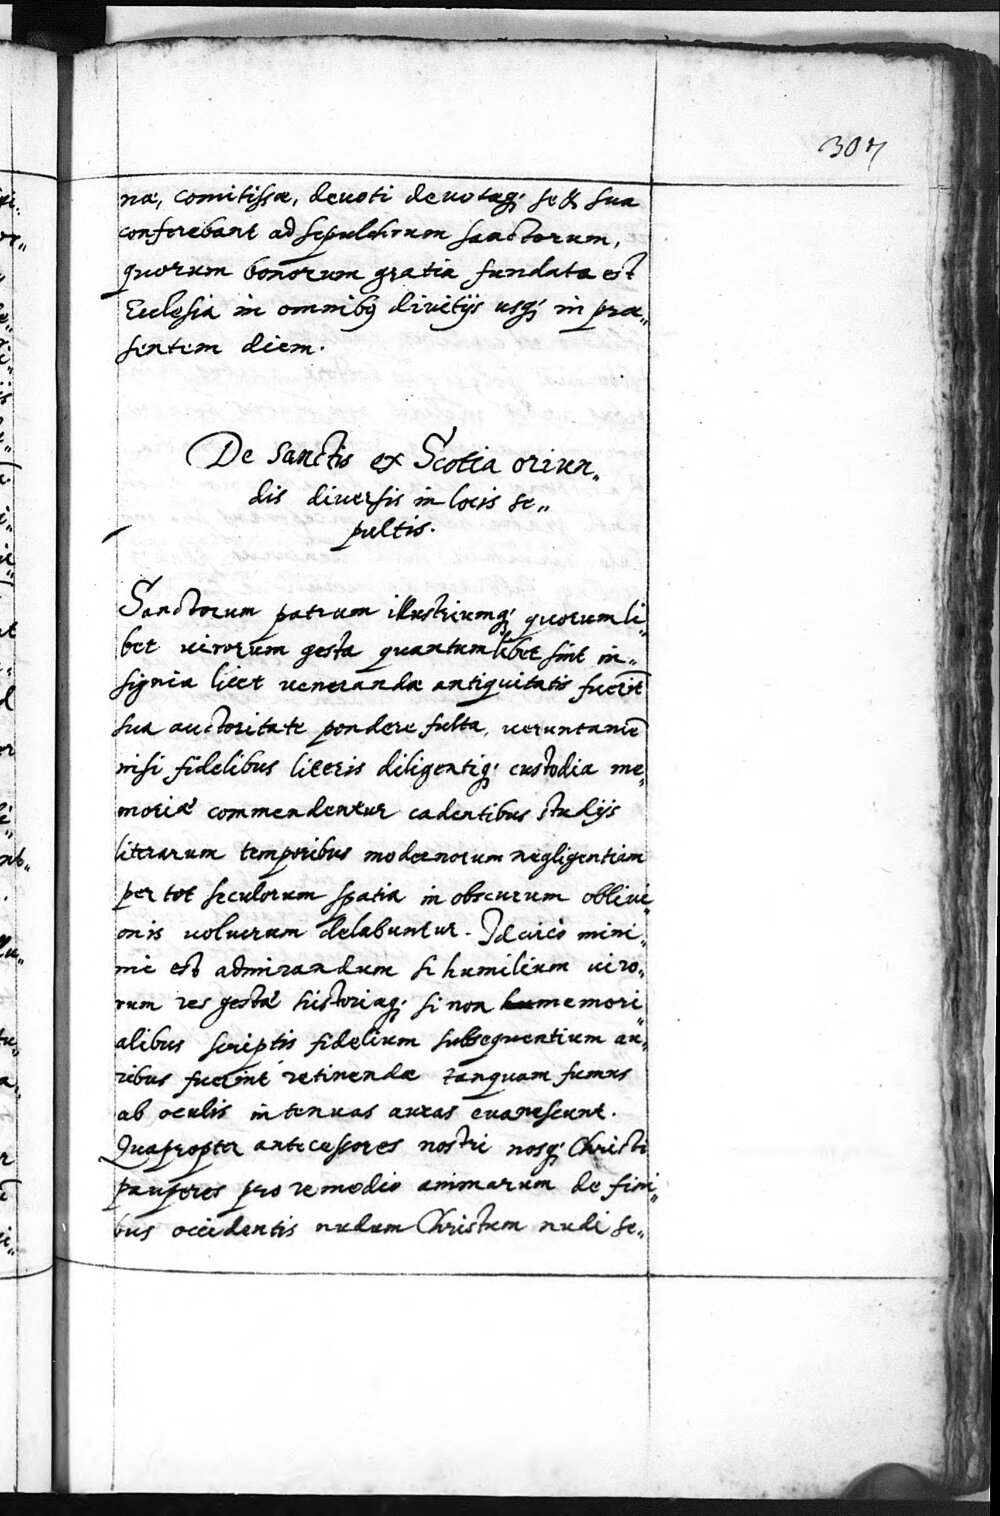 307
næ, comitissæ, devoti devotaq; se & sua
conferebant ad sepulchrum sanctorum,
quorum bonorum gratia fundata est
Ecclesia in omnibus divitijs usq; in præ„
sentem diem.
De Sanctis ex Scotia oriun„
dis diversis in locis se„
pultis.
Sanctorum patrum illustriumq; quorumli„
bet virorum gesta quantumlibet sint in„
signia licet venerandæ antiquitatis fuerīt
sua auctoritate pondere fulta, veruntamē
nisi fidelibus literis diligentiq; custodia me„
moriæ commendentur cadentibus studijs
literarum temporibus modernorum negligentiam
per tot seculorum spatia in obscurum oblivi„
onis volverum delabuntur. Idcirco mini„
me est admirandum si humilium viro„
rum res gestæ historiaq; si non memori„
alibus scriptis fidelium subsequentium au„
ribus fuerint retinendæ tanquam fumus
ab oculis in tenuas auras evanescunt.
Quapropter antecessores nostri nosq; Christi
pauperes pro remedio animarum de fini„
bus occidentis nudum Christum nudi se„